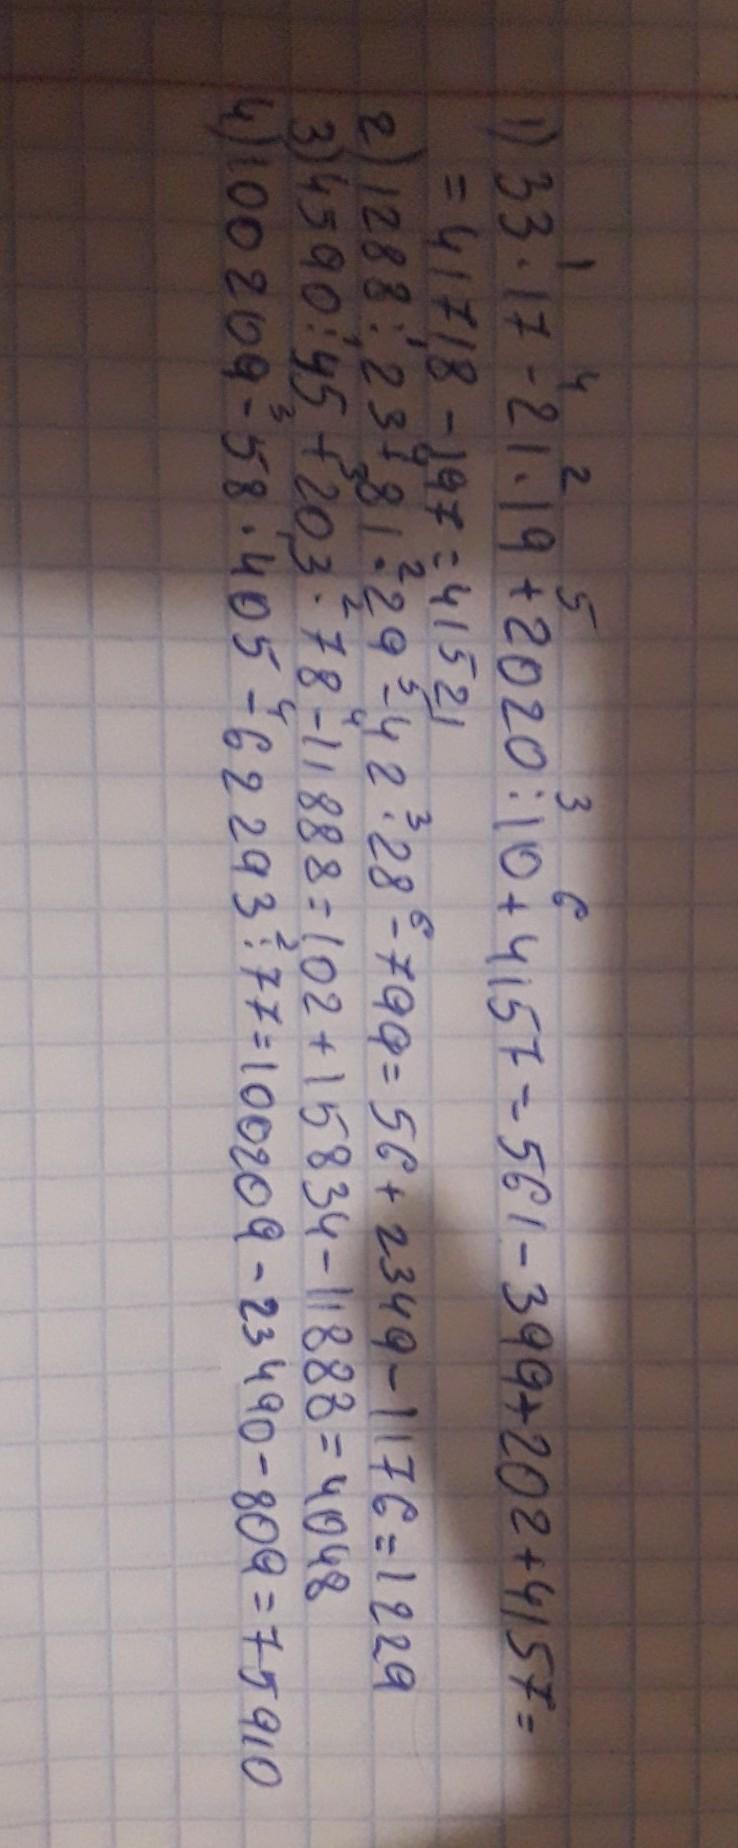 1) 33 · 17 - 21 · 19 + 2020 : 10 + 4157 = 561 - 399 + 202 + 4157 =
= 41718 - 197 = 41521
2) 1288 : 23 + 81 · 29 - 42 · 28 - 799 = 56 + 2349 - 1176 = 1229
3) 4590 : 45 + 203 · 78 - 11888 = 102 + 15834 - 11888 = 4048
4) 100209 - 58 · 405 - 62293 : 77 = 100209 - 23490 - 809 = 75910